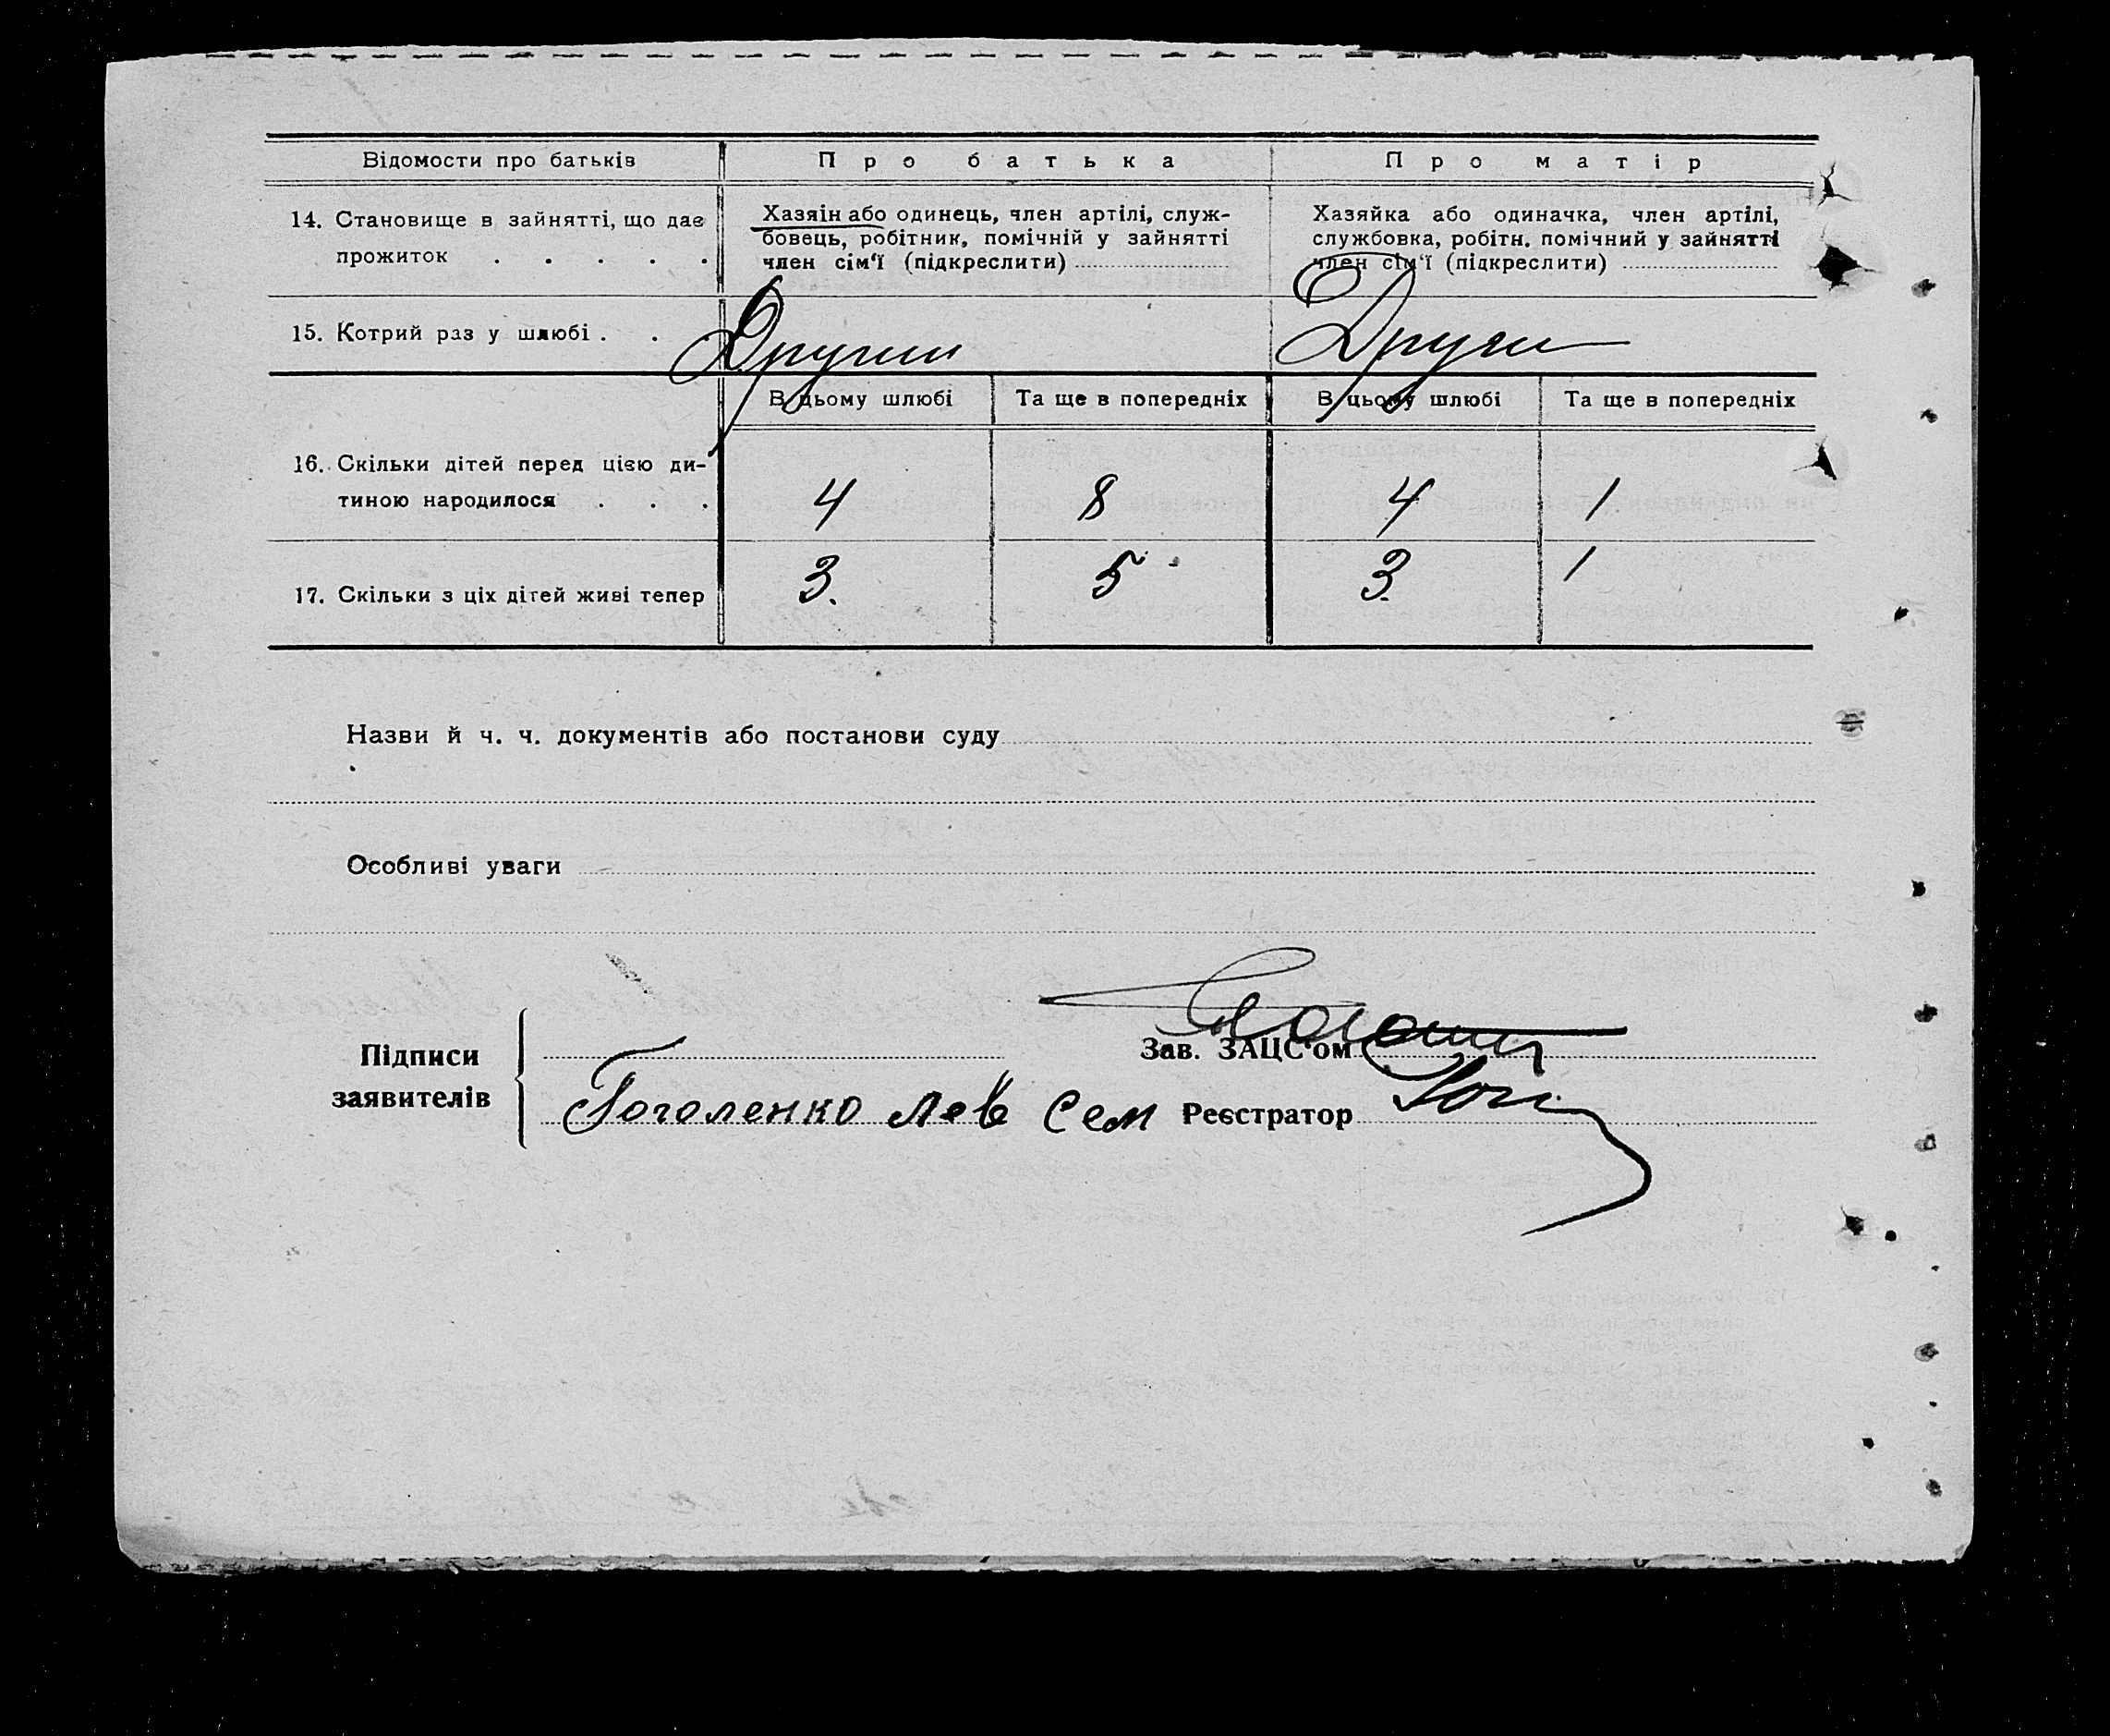 Відомости про батьків Про батька Про матір
14. Становище в зайнятті, що дає
прожиток . . . . .
Хазяїн або одинець, член артілі, служ-
бовець, робітник, помічній у зайнятті
член сім'ї (підкреслити)
Хазяйка або одиначка, член артілі,
службовка, робітн. помічний у зайнятті
член сім'ї (підкреслити)
15. Котрий раз у шлюбі . .
Другий
В цьому шлюбі Та ще в попередніх В цьому шлюбі Та ще в попередніх
16. Скільки дітей перед цією ди-
тиною народилося . . .
4 8 4 1
17. Скільки з ціх дітей живі тепер
3. 5 3 1
Назви й ч. ч. документів або постанови суду
Особливі уваги
Підписи
заявителів
Зав. ЗАЦС'ом
Гоголенко Лев Сем Реєстратор